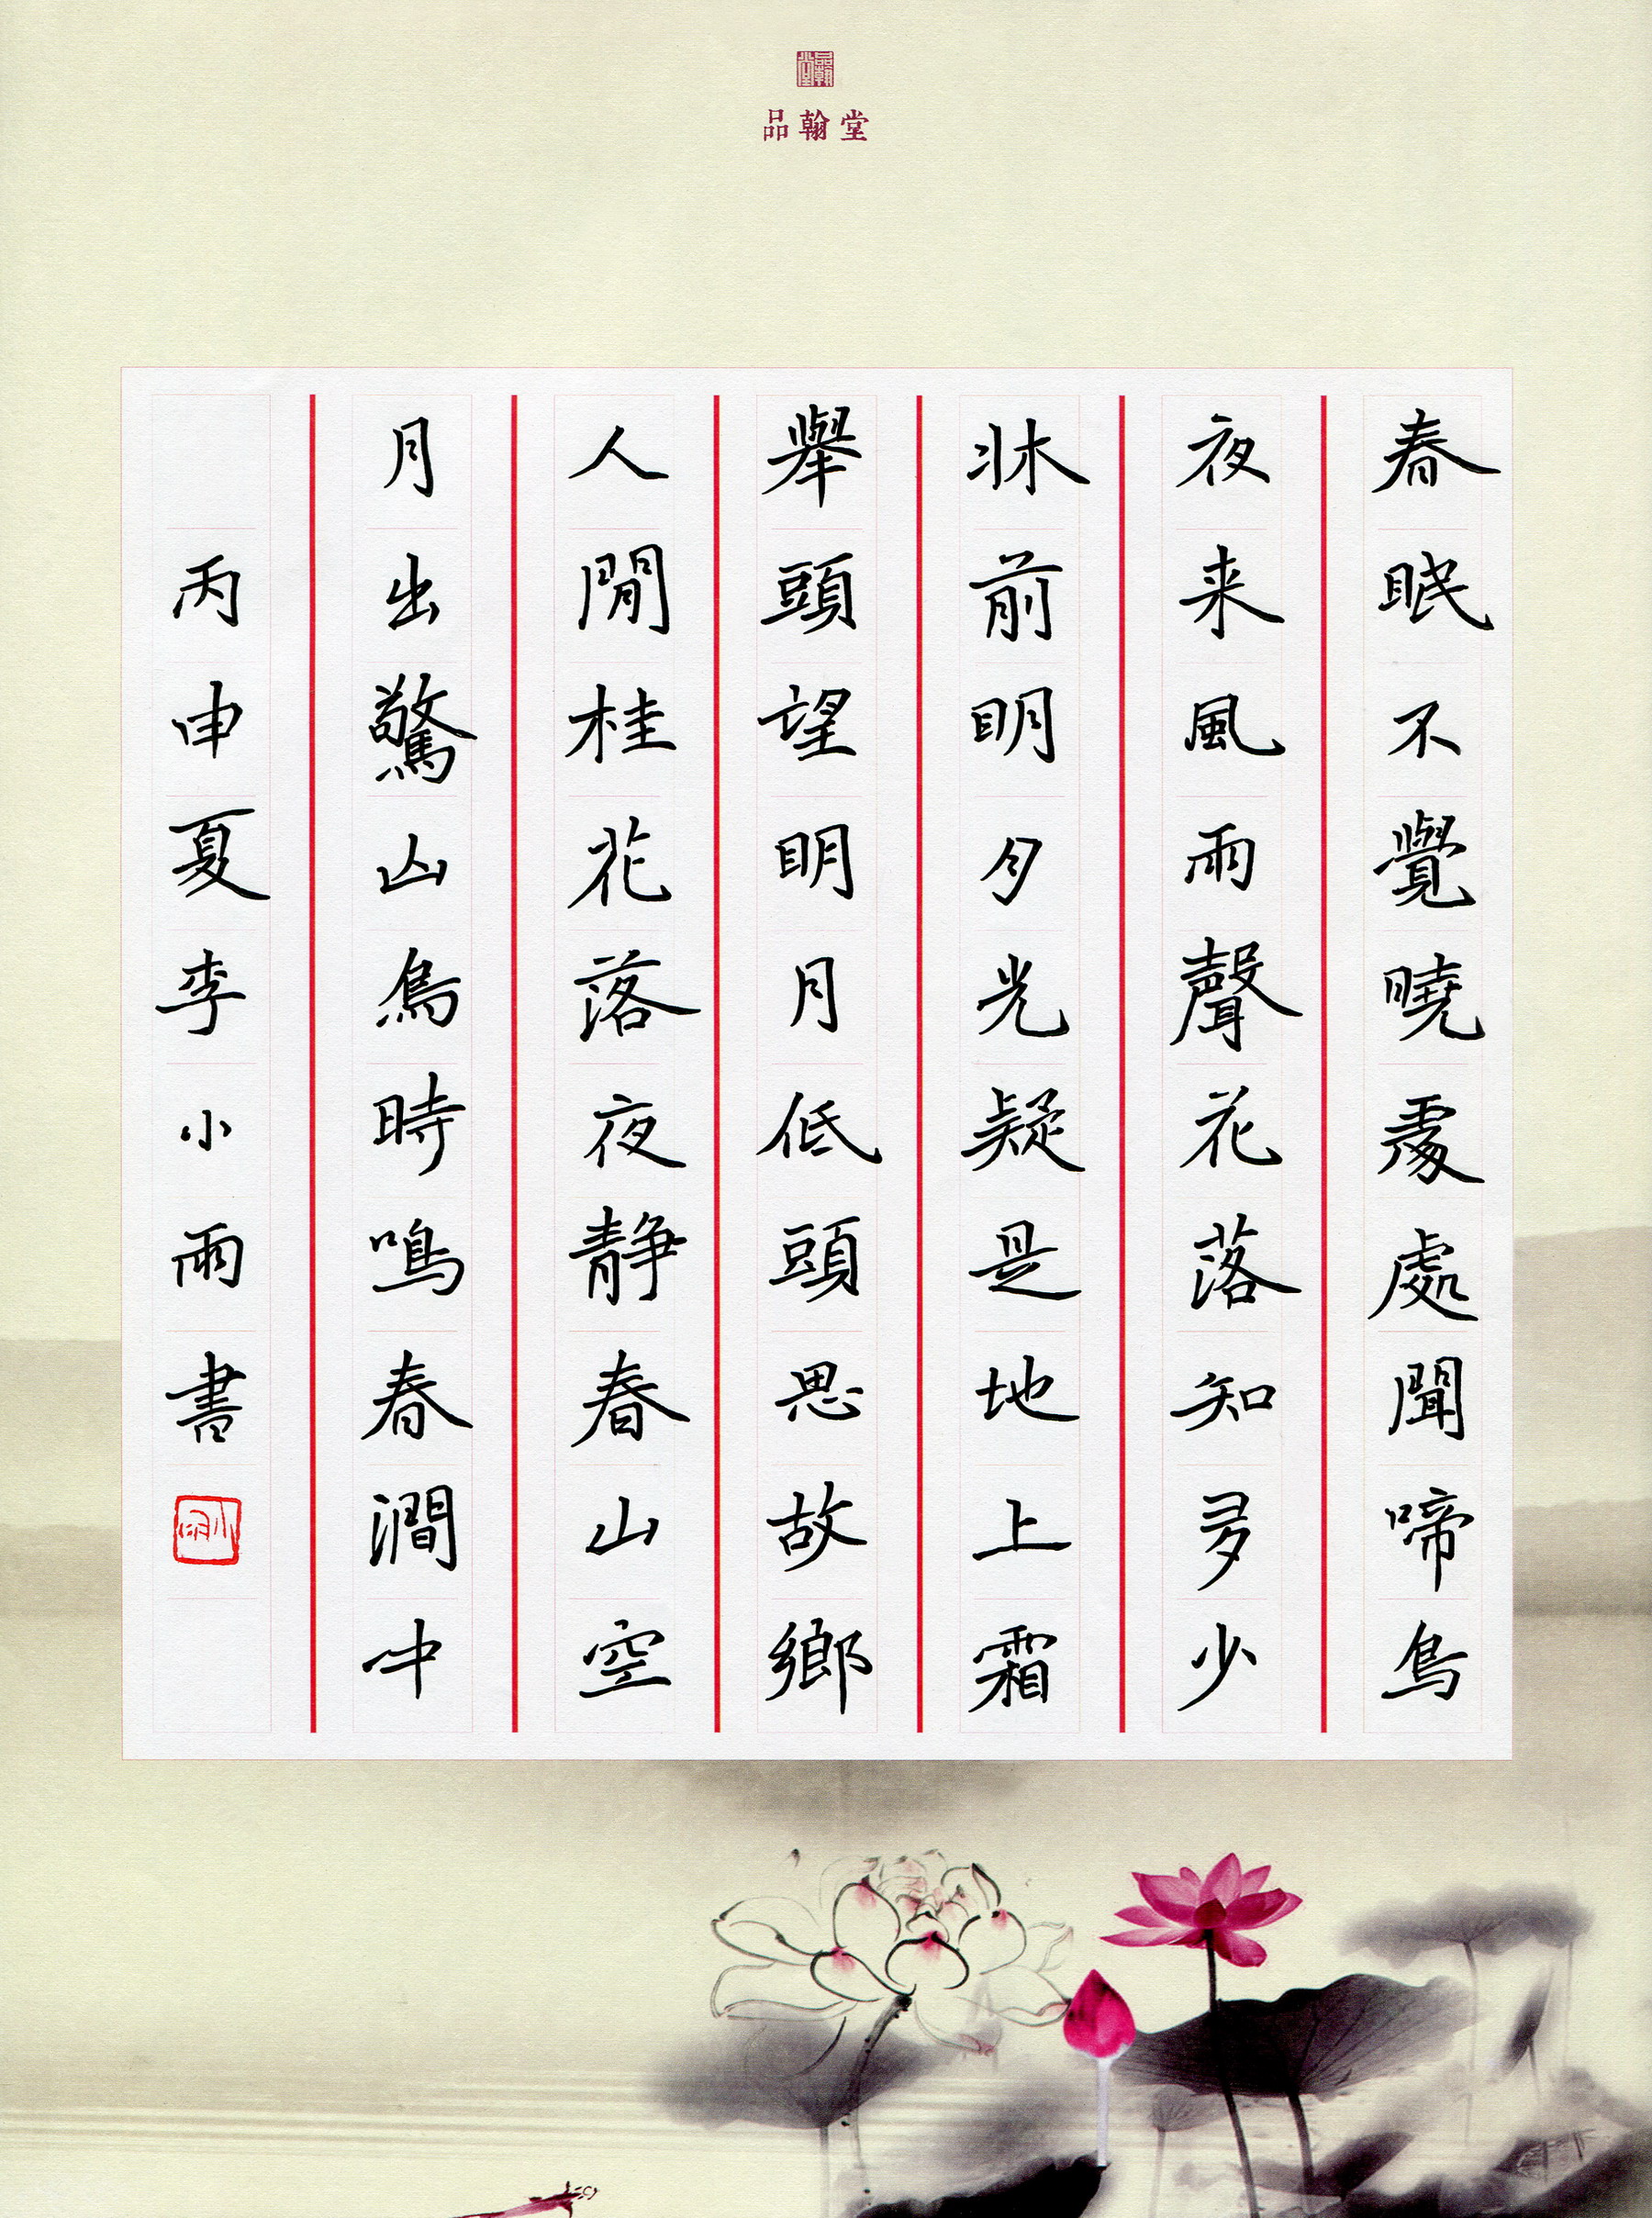 品翰堂
品翰堂
春眠不覺曉處處聞啼鳥
夜来風雨聲花落知多少
牀前明月光疑是地上霜
舉頭望明月低頭思故鄉
人閒桂花落夜静春山空
月出驚山鳥時鳴春澗中
丙申夏李小雨書
小雨